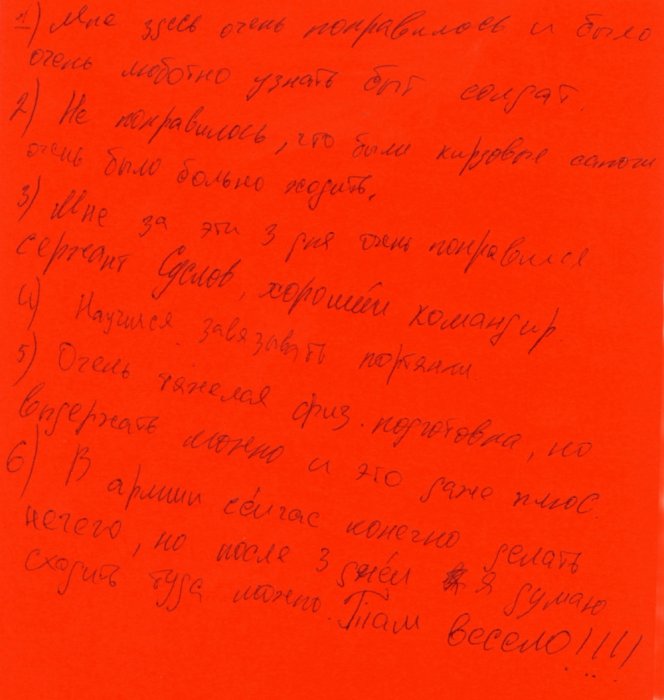 1) Мне здесь очень понравилось и было
очень люботно узнать быт солдат.
2) Не понравилось, что были кирзовые сапоги
очень было больно ходить.
3) Мне за эти 3 дня очень понравился
сержант, хороший командир
4) Научился завязывать портянки
5) Очень тяжелая физ. подготовка, но
выдержать можно и это даже плюс.
6) В армии сейчас конечно делать
нечего, но после 3 дней я думаю
сходить туда можно. Там весело!!!!